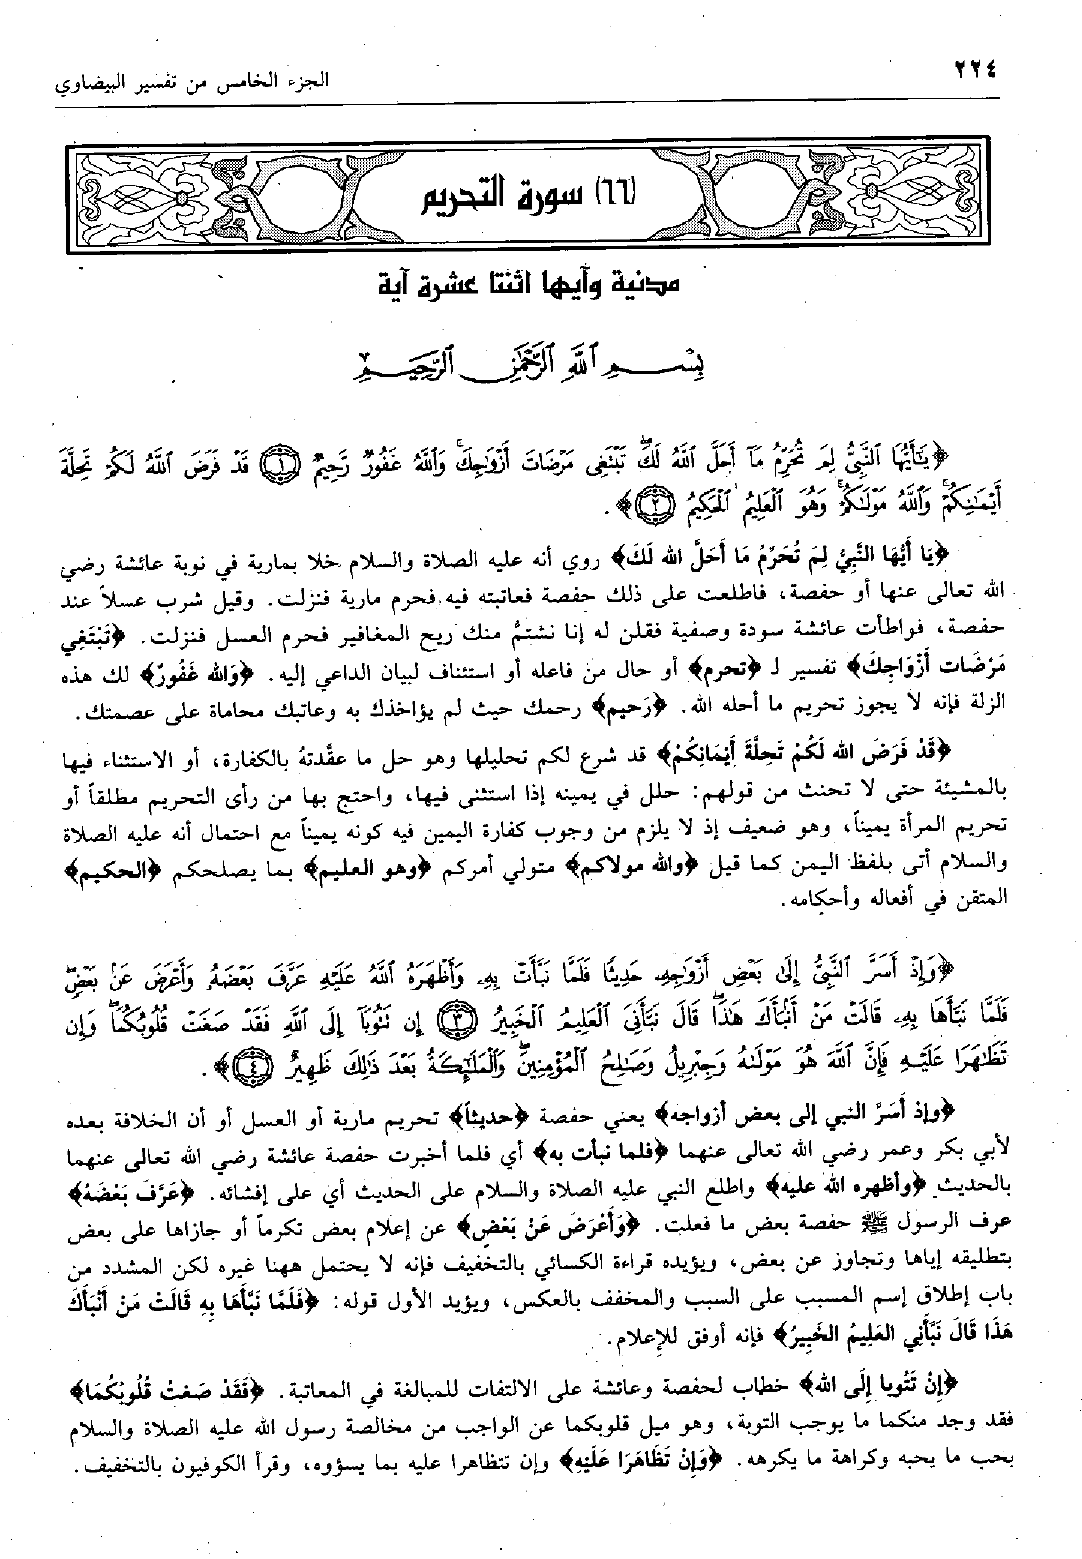 ٢٢٤
الجزء الخامس من تفسير البيضاوي
(٦٦) سورة التحريم
مدنية وآيها اثنتا عشرة آية
بِسْمِ ٱللَّهِ ٱلرَّحْمَٰنِ ٱلرَّحِيمِ
﴿يَٰٓأَيُّهَا ٱلنَّبِىُّ لِمَ تُحَرِّمُ مَآ أَحَلَّ ٱللَّهُ لَكَ ۖ تَبْتَغِى مَرْضَاتَ أَزْوَٰجِكَ ۚ وَٱللَّهُ غَفُورٌ رَّحِيمٌ ﴿١﴾ قَدْ فَرَضَ ٱللَّهُ لَكُمْ تَحِلَّةَ
أَيْمَٰنِكُمْ ۚ وَٱللَّهُ مَوْلَىٰكُمْ ۖ وَهُوَ ٱلْعَلِيمُ ٱلْحَكِيمُ ﴿٢﴾﴾.
﴿يَا أَيُّهَا النَّبِيُّ لِمَ تُحَرِّمُ مَا أَحَلَّ الله لَكَ﴾ روي أنه عليه الصلاة والسلام خلا بمارية في نوبة عائشة رضي
الله تعالى عنها أو حفصة، فاطلعت على ذلك حفصة فعاتبته فيه فحرم مارية فنزلت. وقيل شرب عسلاً عند
حفصة، فواطأت عائشة سودة وصفية فقلن له إنا نشتمُّ منك ريح المغافير فحرم العسل فنزلت. ﴿تَبْتَغِي
مَرْضَات أَزْوَاجِكَ﴾ تفسير لـ ﴿تحرم﴾ أو حال من فاعله أو استئناف لبيان الداعي إليه. ﴿وَالله غَفُورٌ﴾ لك هذه
الزلة فإنه لا يجوز تحريم ما أحله الله. ﴿رَحيم﴾ رحمك حيث لم يؤاخذك به وعاتبك محاماة على عصمتك.
﴿قَدْ فَرَضَ الله لَكُمْ تَحِلَّةَ أَيْمَانِكُمْ﴾ قد شرع لكم تحليلها وهو حل ما عقَّدتهُ بالكفارة، أو الاستثناء فيها
بالمشيئة حتى لا تحنث من قولهم: حلل في يمينه إذا استثنى فيها، واحتج بها من رأى التحريم مطلقاً أو
تحريم المرأة يميناً، وهو ضعيف إذ لا يلزم من وجوب كفارة اليمين فيه كونه يميناً مع احتمال أنه عليه الصلاة
والسلام أتى بلفظ اليمن كما قيل ﴿والله مولاكم﴾ متولي أمركم ﴿وهو العليم﴾ بما يصلحكم ﴿الحكيم﴾
المتقن في أفعاله وأحكامه.
﴿وَإِذْ أَسَرَّ ٱلنَّبِىُّ إِلَىٰ بَعْضِ أَزْوَٰجِهِۦ حَدِيثًا فَلَمَّا نَبَّأَتْ بِهِۦ وَأَظْهَرَهُ ٱللَّهُ عَلَيْهِ عَرَّفَ بَعْضَهُۥ وَأَعْرَضَ عَنۢ بَعْضٍ ۖ
فَلَمَّا نَبَّأَهَا بِهِۦ قَالَتْ مَنْ أَنۢبَأَكَ هَٰذَا ۖ قَالَ نَبَّأَنِىَ ٱلْعَلِيمُ ٱلْخَبِيرُ ﴿٣﴾ إِن تَتُوبَآ إِلَى ٱللَّهِ فَقَدْ صَغَتْ قُلُوبُكُمَا ۖ وَإِن
تَظَٰهَرَا عَلَيْهِ فَإِنَّ ٱللَّهَ هُوَ مَوْلَىٰهُ وَجِبْرِيلُ وَصَٰلِحُ ٱلْمُؤْمِنِينَ ۖ وَٱلْمَلَٰٓئِكَةُ بَعْدَ ذَٰلِكَ ظَهِيرٌ ﴿٤﴾﴾.
﴿وإذ أَسَرَّ النبي إلى بعض أزواجه﴾ يعني حفصة ﴿حديثاً﴾ تحريم مارية أو العسل أو أن الخلافة بعده
لأبي بكر وعمر رضي الله تعالى عنهما ﴿فلما نبأت به﴾ أي فلما أخبرت حفصة عائشة رضي الله تعالى عنهما
بالحديث. ﴿وأظهره الله عليه﴾ واطلع النبي عليه الصلاة والسلام على الحديث أي على إفشائه. ﴿عَرَّفَ بَعْضَهُ﴾
عرف الرسول ﷺ حفصة بعض ما فعلت. ﴿وَأَعْرَضَ عَنْ بَعْضٍ﴾ عن إعلام بعض تكرماً أو جازاها على بعض
بتطليقه إياها وتجاوز عن بعض، ويؤيده قراءة الكسائي بالتخفيف فإنه لا يحتمل ههنا غيره لكن المشدد من
باب إطلاق إسم المسبب على السبب والمخفف بالعكس، ويؤيد الأول قوله: ﴿فَلَمَّا نَبَّأَهَا بِهِ قَالَتْ مَنْ أَنْبَأَكَ
هَذَا قَالَ نَبَّأَنِي العَلِيمُ الخَبِيرُ﴾ فإنه أوفق للإعلام.
﴿إِنْ تَتُوبا إِلَى الله﴾ خطاب لحفصة وعائشة على الالتفات للمبالغة في المعاتبة. ﴿فَقَدْ صَغَتْ قُلُوبُكُمَا﴾
فقد وجد منكما ما يوجب التوبة، وهو ميل قلوبكما عن الواجب من مخالصة رسول الله عليه الصلاة والسلام
بحب ما يحبه وكراهة ما يكرهه. ﴿وَإِنْ تَظَاهَرَا عَلَيْهِ﴾ وإن تتظاهرا عليه بما يسؤوه، وقرأ الكوفيون بالتخفيف.